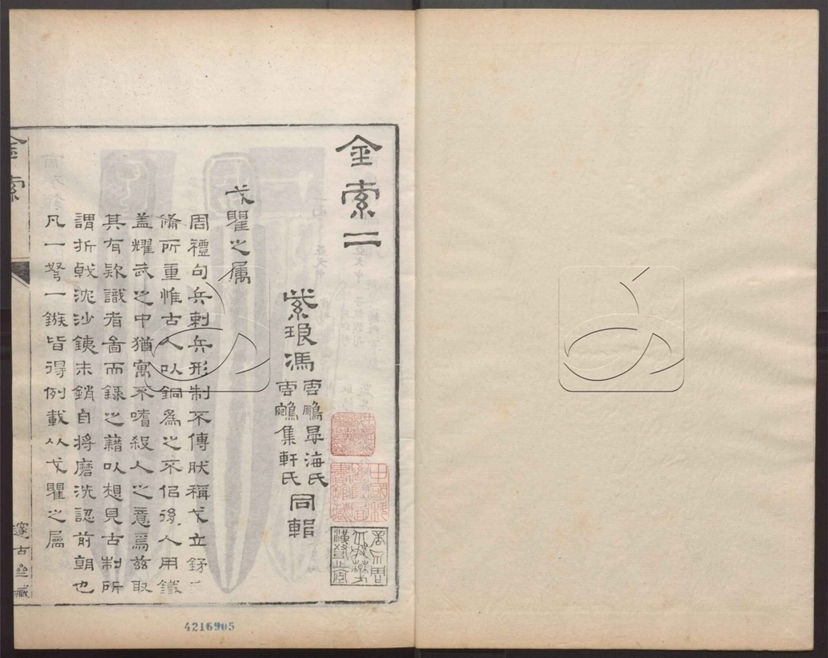 金索二
紫琅馮
雲鵬晏海氏
雲鵷集軒氏
同輯
戈瞿之屬
周禮句兵刺兵形制不傳肰稱戈立
脩所重惟古人以銅為之不侶後人用鐵
蓋耀武之中猶寓不嗜殺人之意焉茲取
其有款識者啚而錄之藉以想見古制所
謂折戟沈沙鐵未銷自將磨洗認前朝也
凡一弩一鏃皆得例載从戈瞿之屬
金索
邃古齋藏
4216905